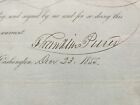 and signed by me and for so doing this
warrant.
Franklin Pierce
Washington, Nov 23. 185